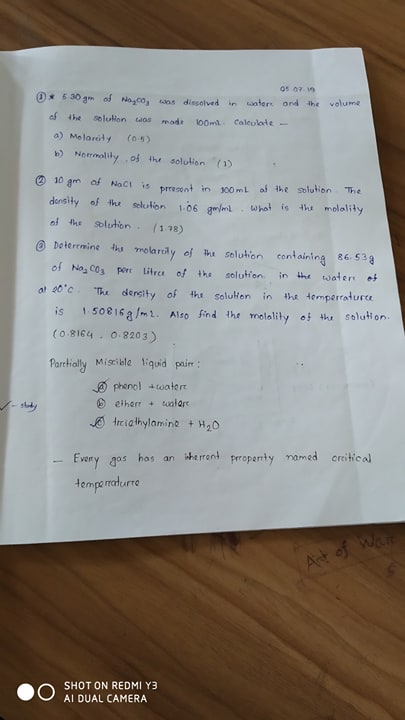 05.07.19
① * 5.30 gm of Na2CO3 was dissolved in waterr and the volume
of the solution was made 100mL. Calculate —
a) Molarcity (0.5)
b) Norrmality of the solution (1)
② 10 gm of NaCl is prresent in 100 mL of the solution. The
density of the solution 1.06 gm/mL. What is the molality
of the solution. (1.78)
③ Deterrmine the molarcily of the solution containing 86.53g
of Na2CO3 perr litrre of the solution in the waterr of
at 20°C. The density of the solution in the temperraturre
is 1.50816g/mL. Also find the molality of the solution.
(0.8164 - 0.8203)
Parrtially Miscible liquid pairr:
ⓐ phenol + waterr
ⓑ etherr + waterr
✓ - study
ⓒ trriethylamine + H2O
— Everry gas has an inherrent prroperrty named crritical
temperraturre
Art of War
SHOT ON REDMI Y3
AI DUAL CAMERA